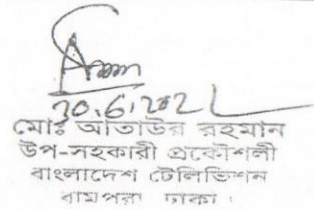 30.6.202
মোঃ আতাউর রহমান
উপ-সহকারী প্রকৌশলী
বাংলাদেশ টেলিভিশন
রামপুরা ঢাকা।